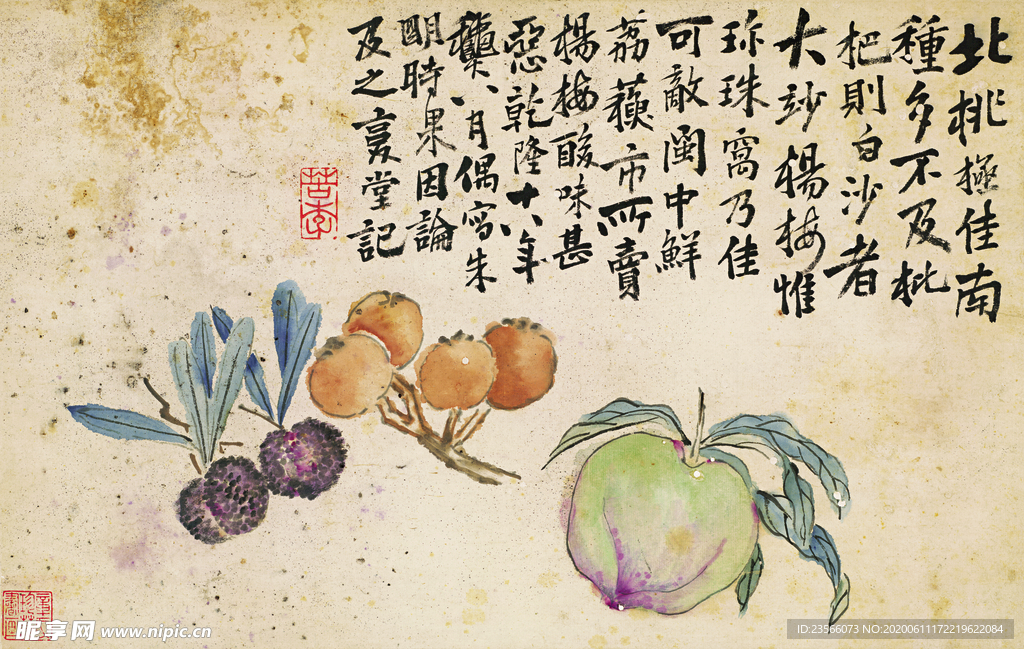 北桃極佳南
種多不及枇
杷則白沙者
大妙楊梅惟
珎珠窩乃佳
可敵閩中鮮
荔蘋市所賣
楊梅酸味甚
惡乾隆十八年
櫱八月偶寫朱
明時果因論
及之夏堂記
昵享网 www.nipic.cn
ID:23566073 NO:20200611172219622084